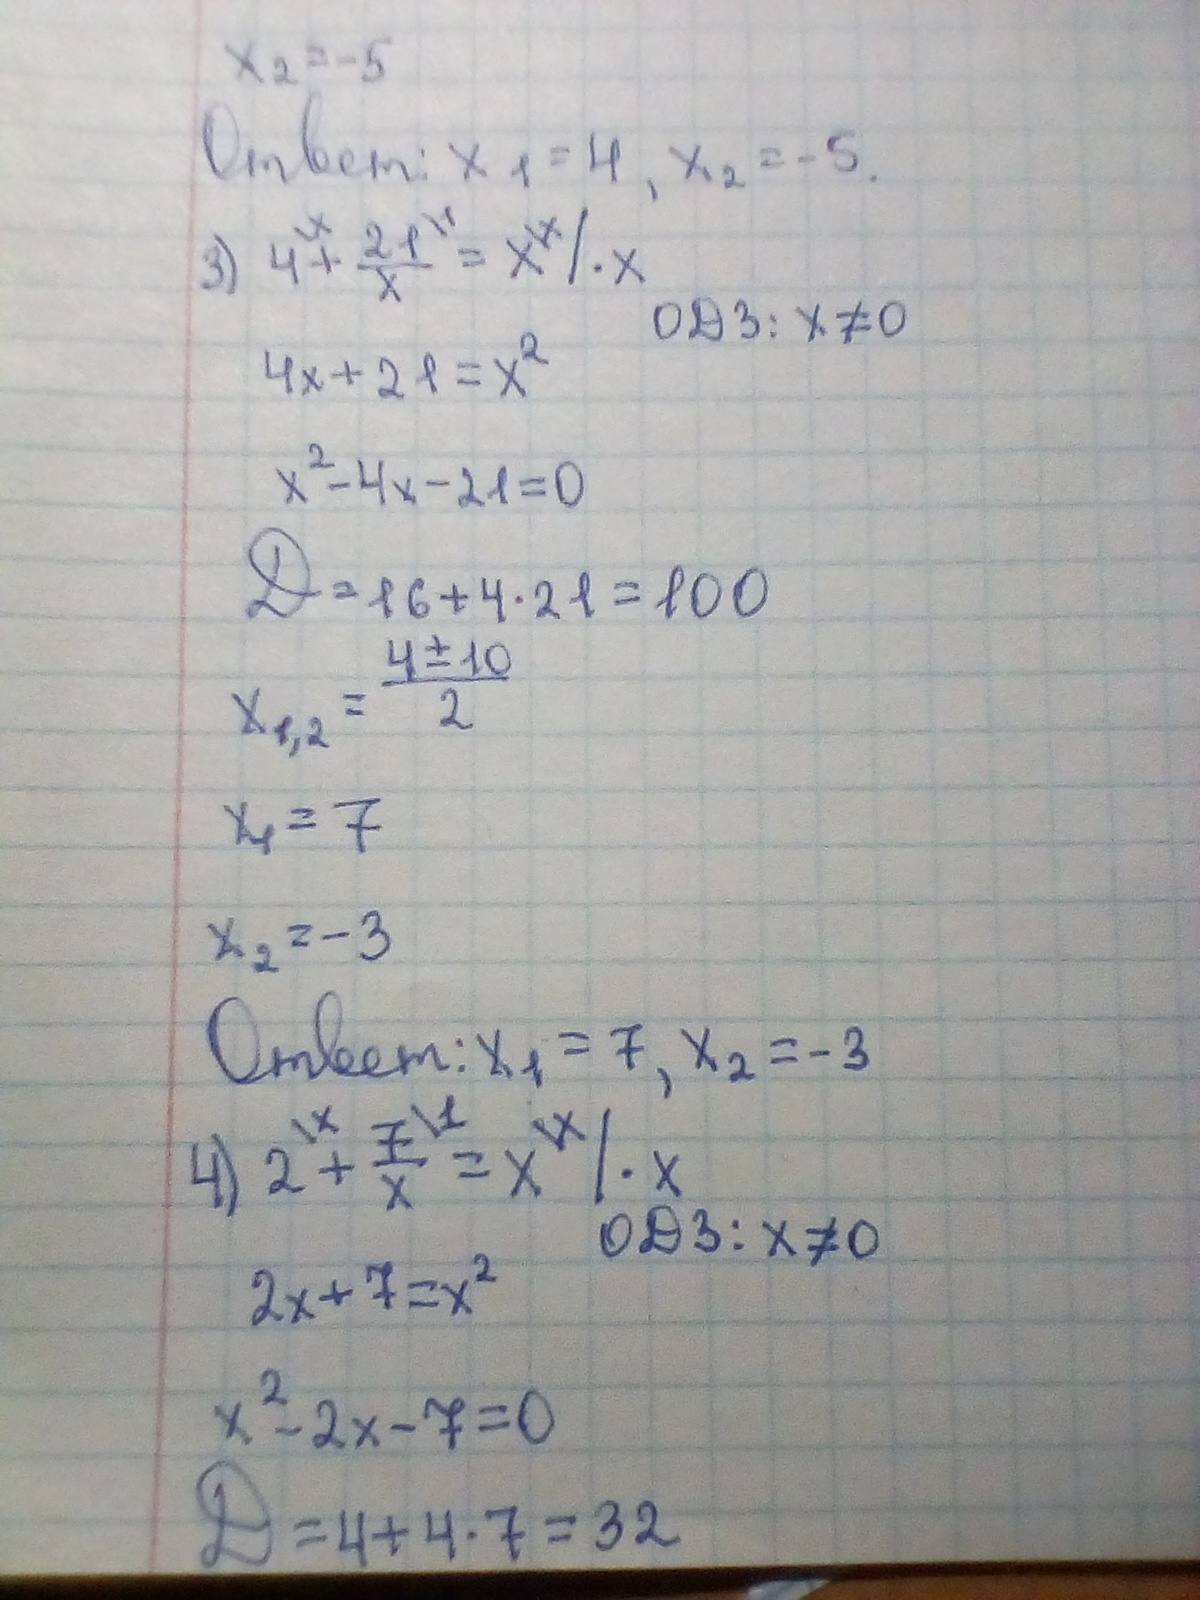 x₂ = -5
Ответ: x₁ = 4, x₂ = -5.
3) 4\x + 21/x\1 = x\x / · x
ОДЗ: x ≠ 0
4x + 21 = x²
x² - 4x - 21 = 0
D = 16 + 4 · 21 = 100
x₁,₂ = (4 ± 10)/2
x₁ = 7
x₂ = -3
Ответ: x₁ = 7, x₂ = -3
4) 2\x + 7/x\1 = x\x / · x
ОДЗ: x ≠ 0
2x + 7 = x²
x² - 2x - 7 = 0
D = 4 + 4 · 7 = 32